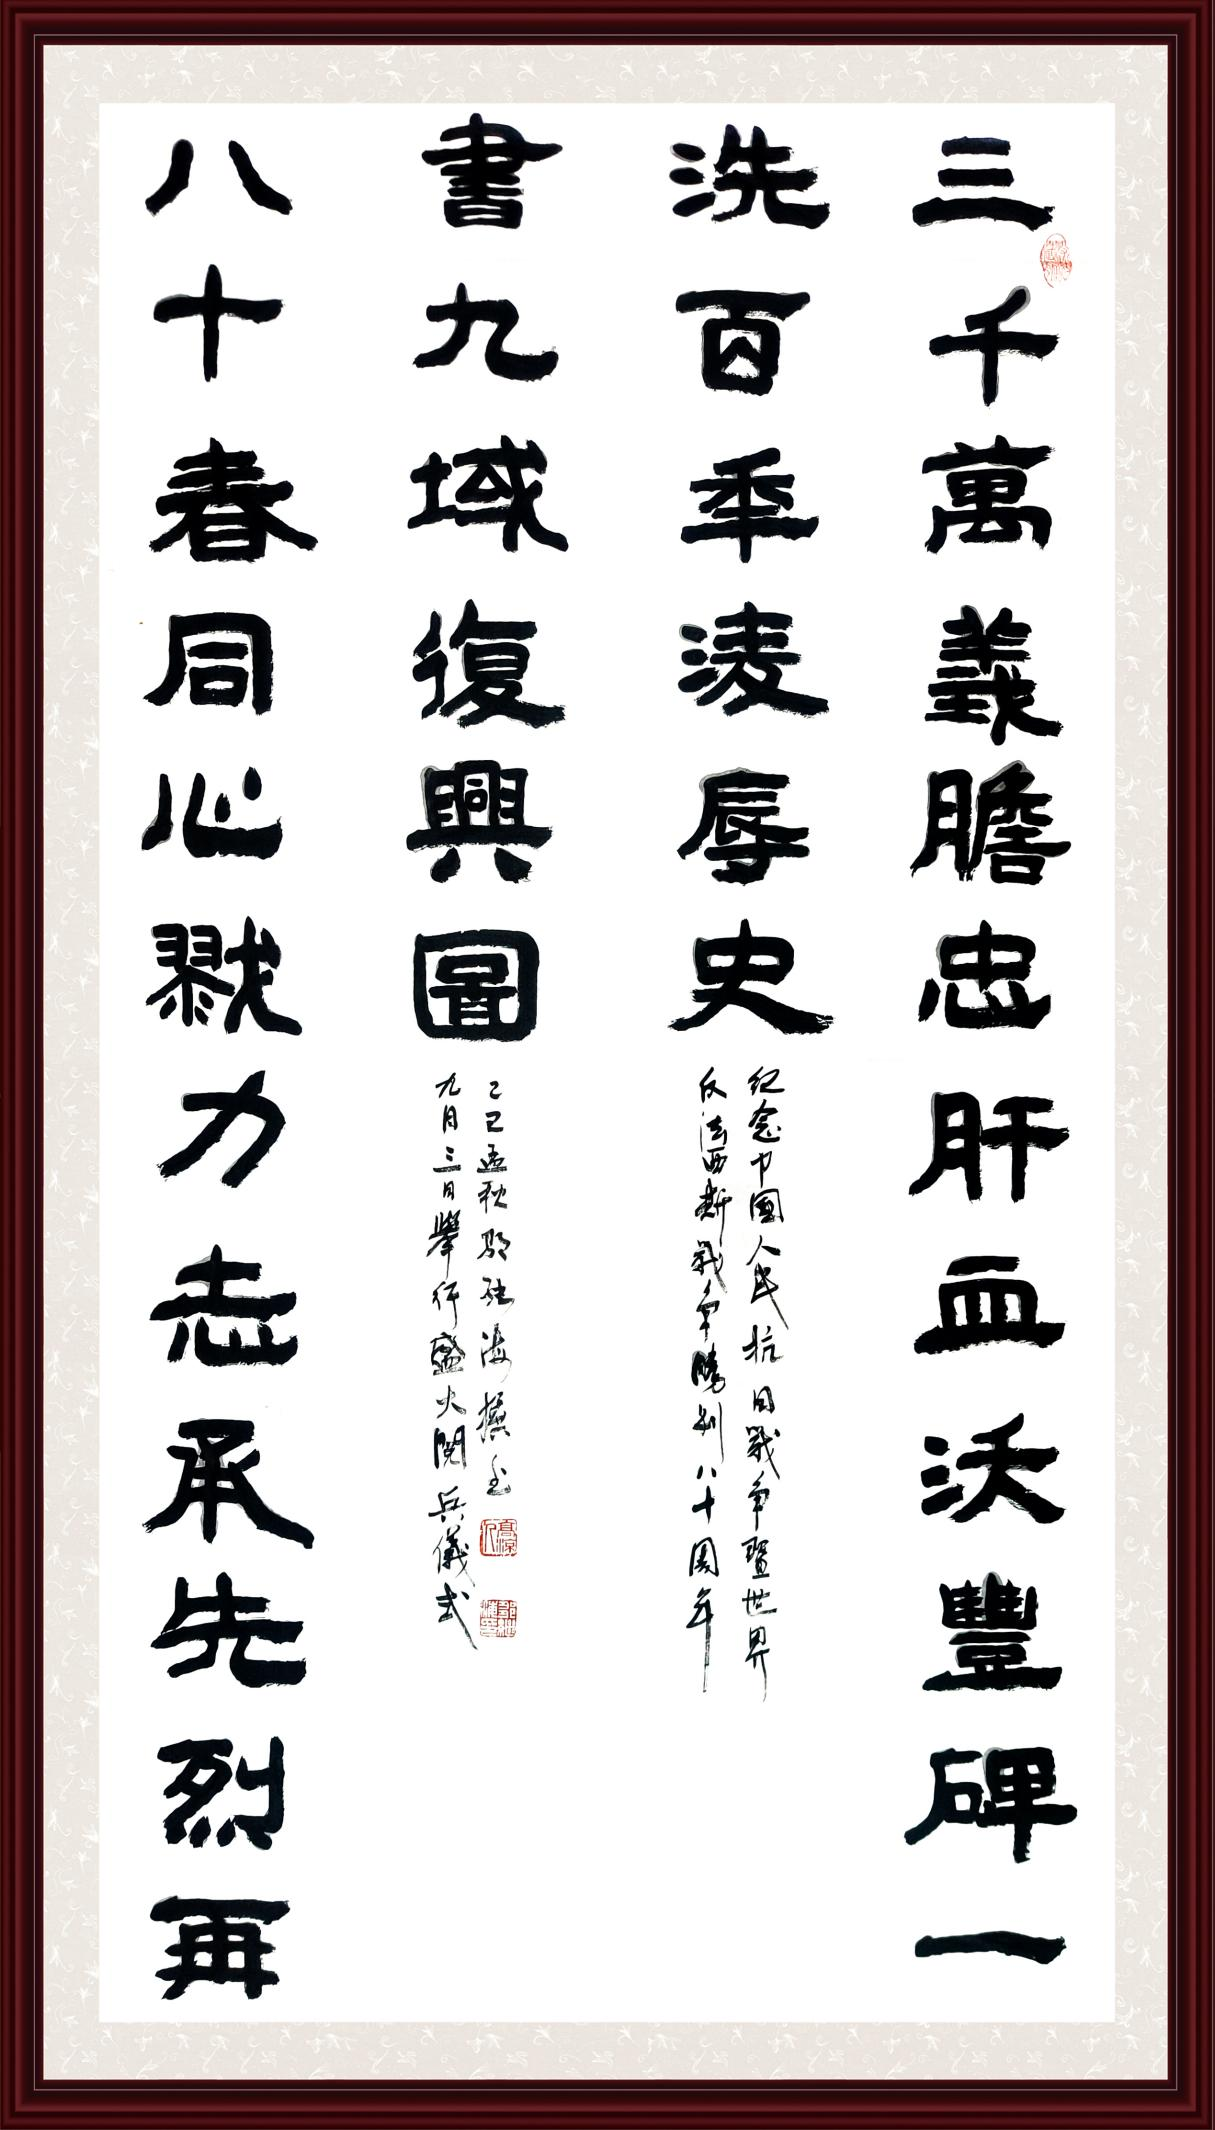 三千萬義膽忠肝血沃豐碑一
洗百秊淩辱史
紀念中國人民抗日戰爭暨世界
反法西斯戰爭勝利八十周年
八十春同心戮力志承先烈再
書九域復興圖
九月三日舉行盛大閱兵儀式
乙巳孟秋鄧海撰書